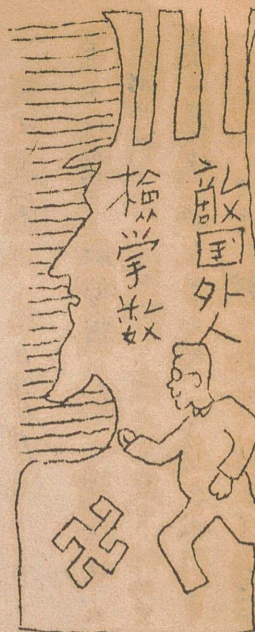 敵国外人
検挙数